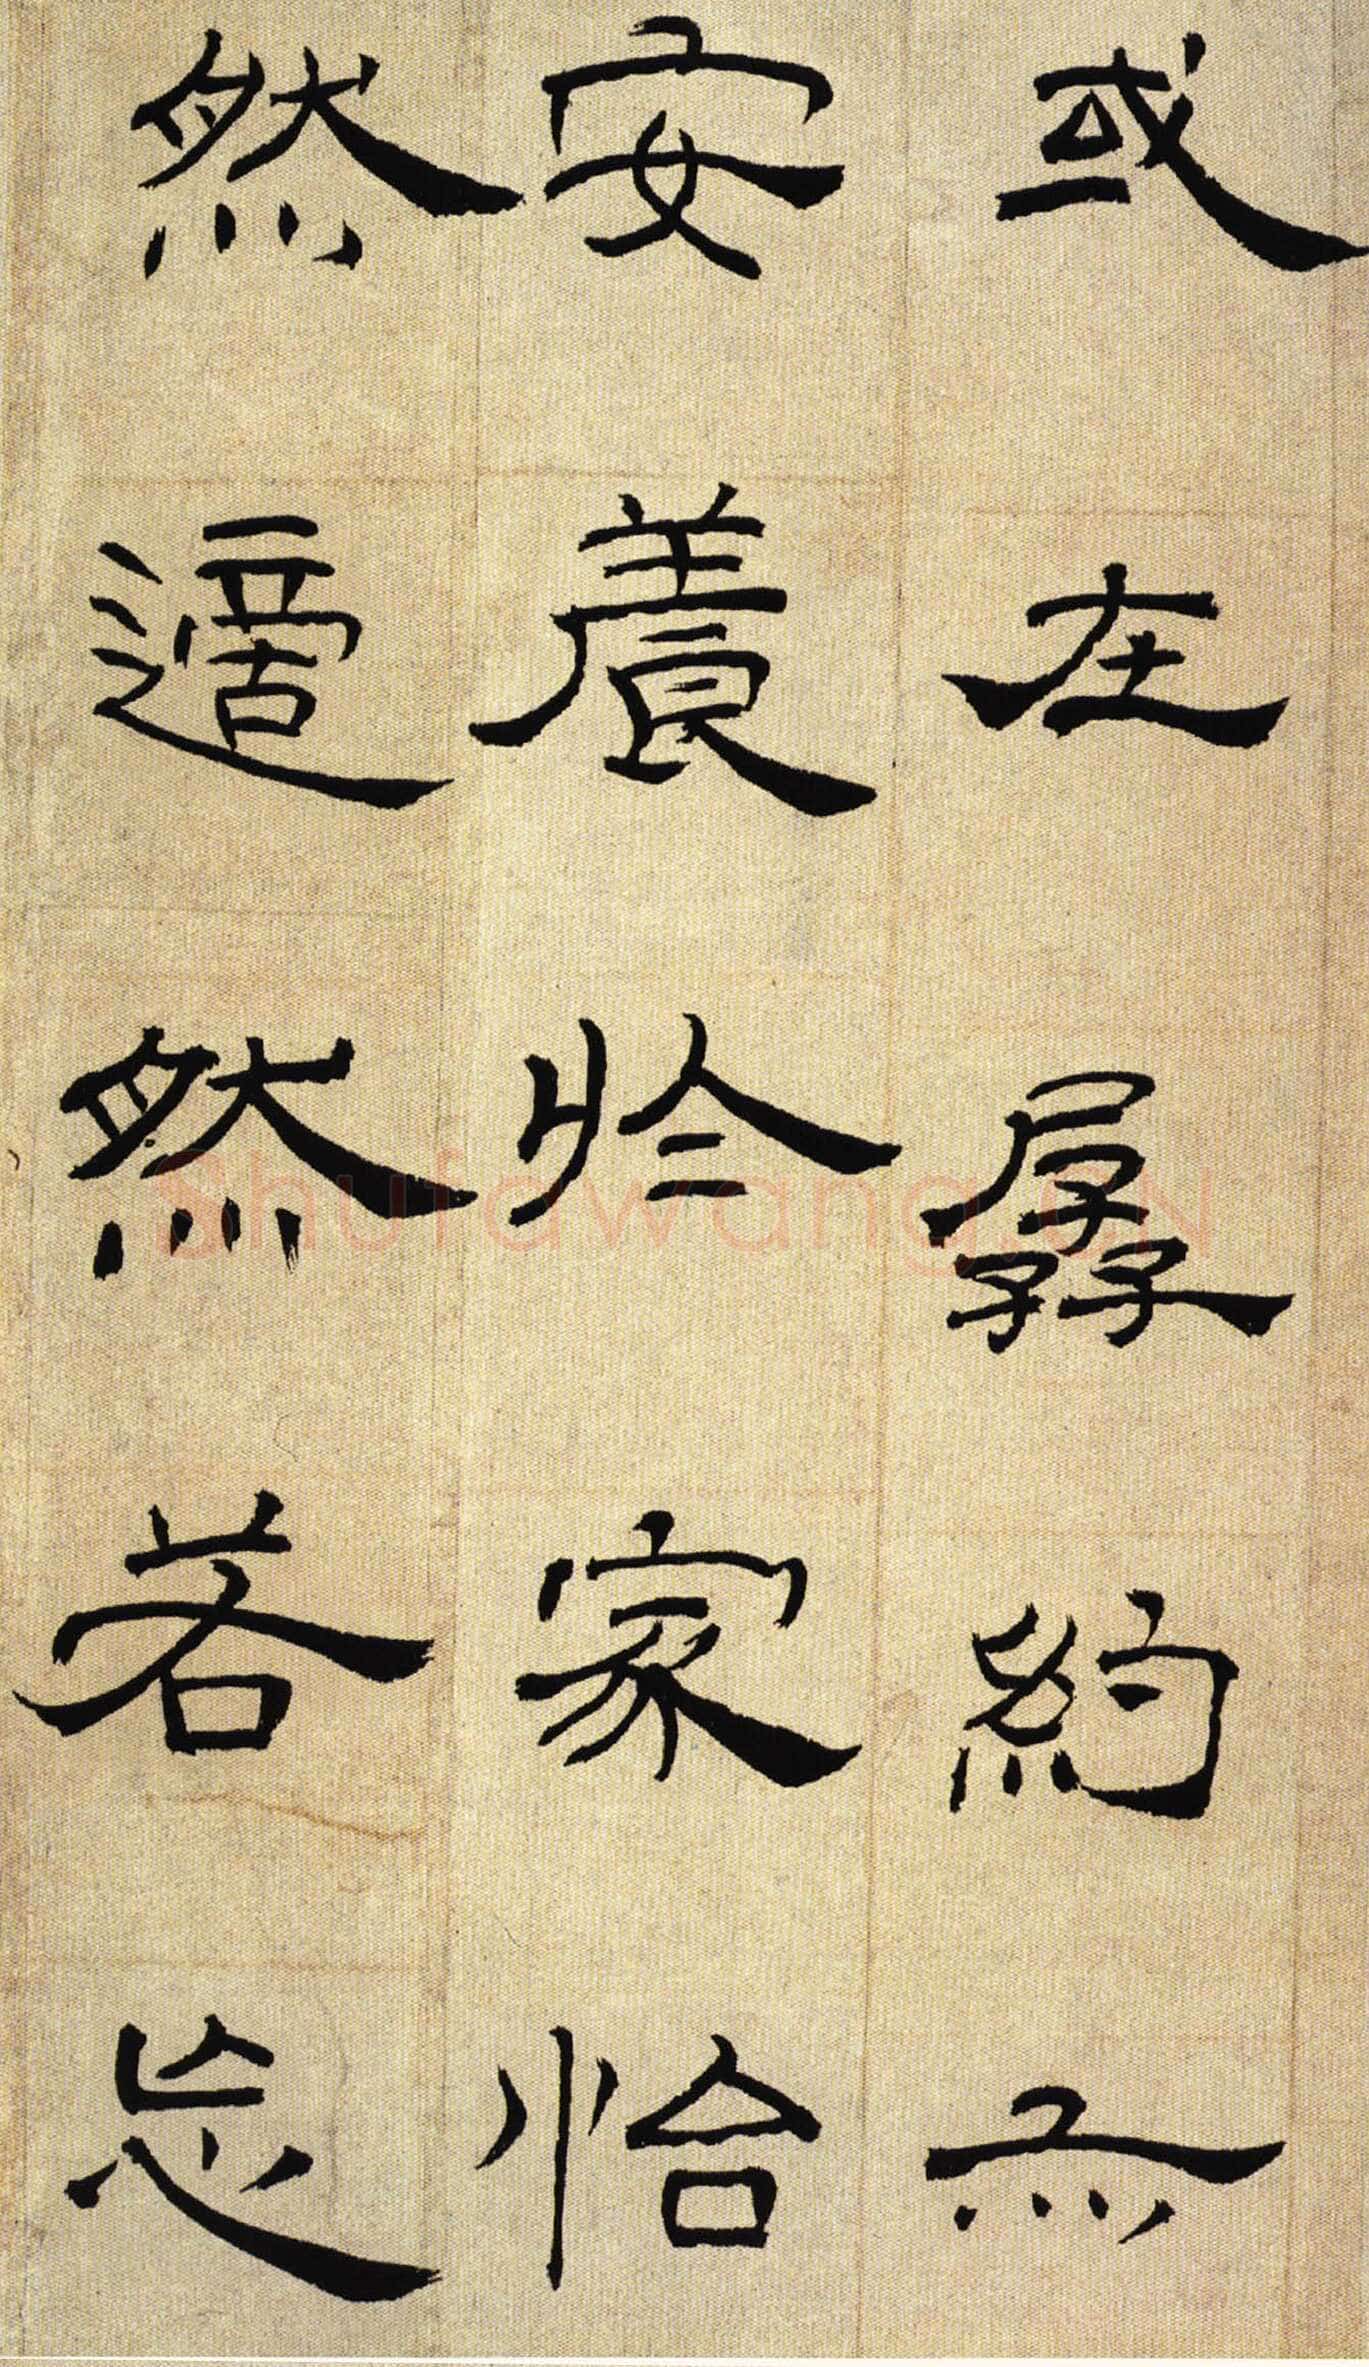 或在孱約亦
安養於家怡
然適然若忘
Shufawang.CN